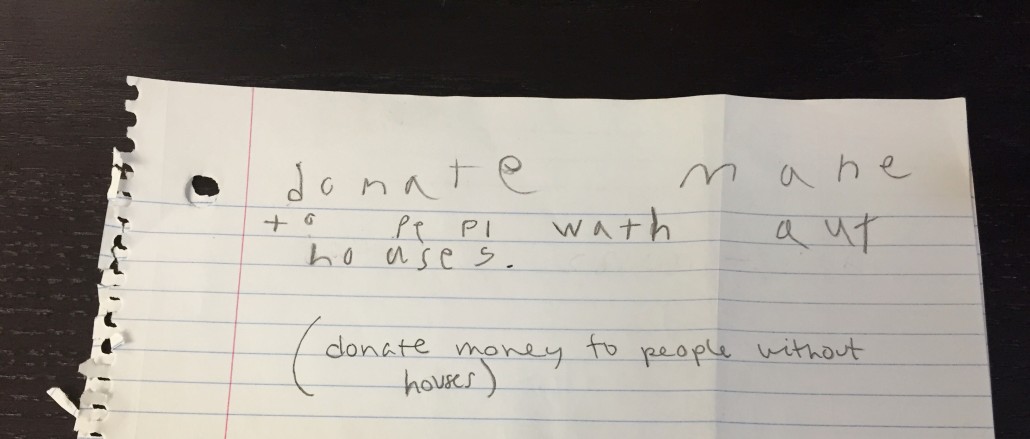 donate mane
to pepl wath aut
houses.
(donate money to people without
houses)